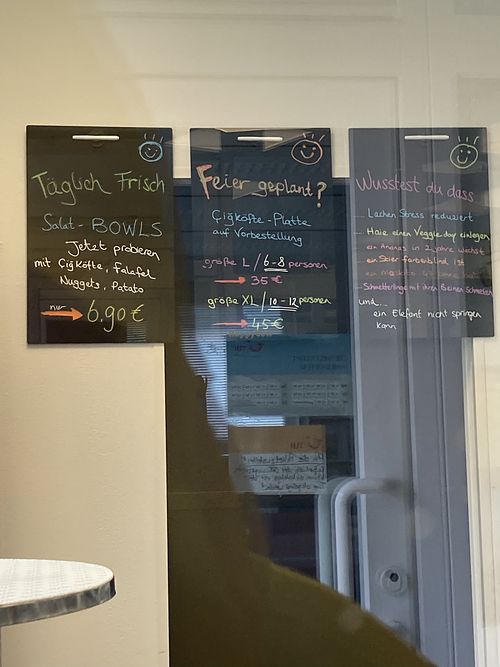 Täglich Frisch
Salat-BOWLS
Jetzt probieren
mit Çiğköfte, Falafel
Nuggets, Potato
nur 6,90 €
Feier geplant?
Çiğköfte-Platte
auf Vorbestellung
größe L / 6-8 personen
35 €
größe XL / 10-12 personen
45 €
Wusstest du dass
Lachen Stress reduziert
Haie einen Veggie-day einlegen
ein Ananas in 2 jahre wächst
ein Stier farbenblind ist
ein
Schmetterlinge mit ihren Beinen schmecken
und...
ein Elefant nicht springen
kann